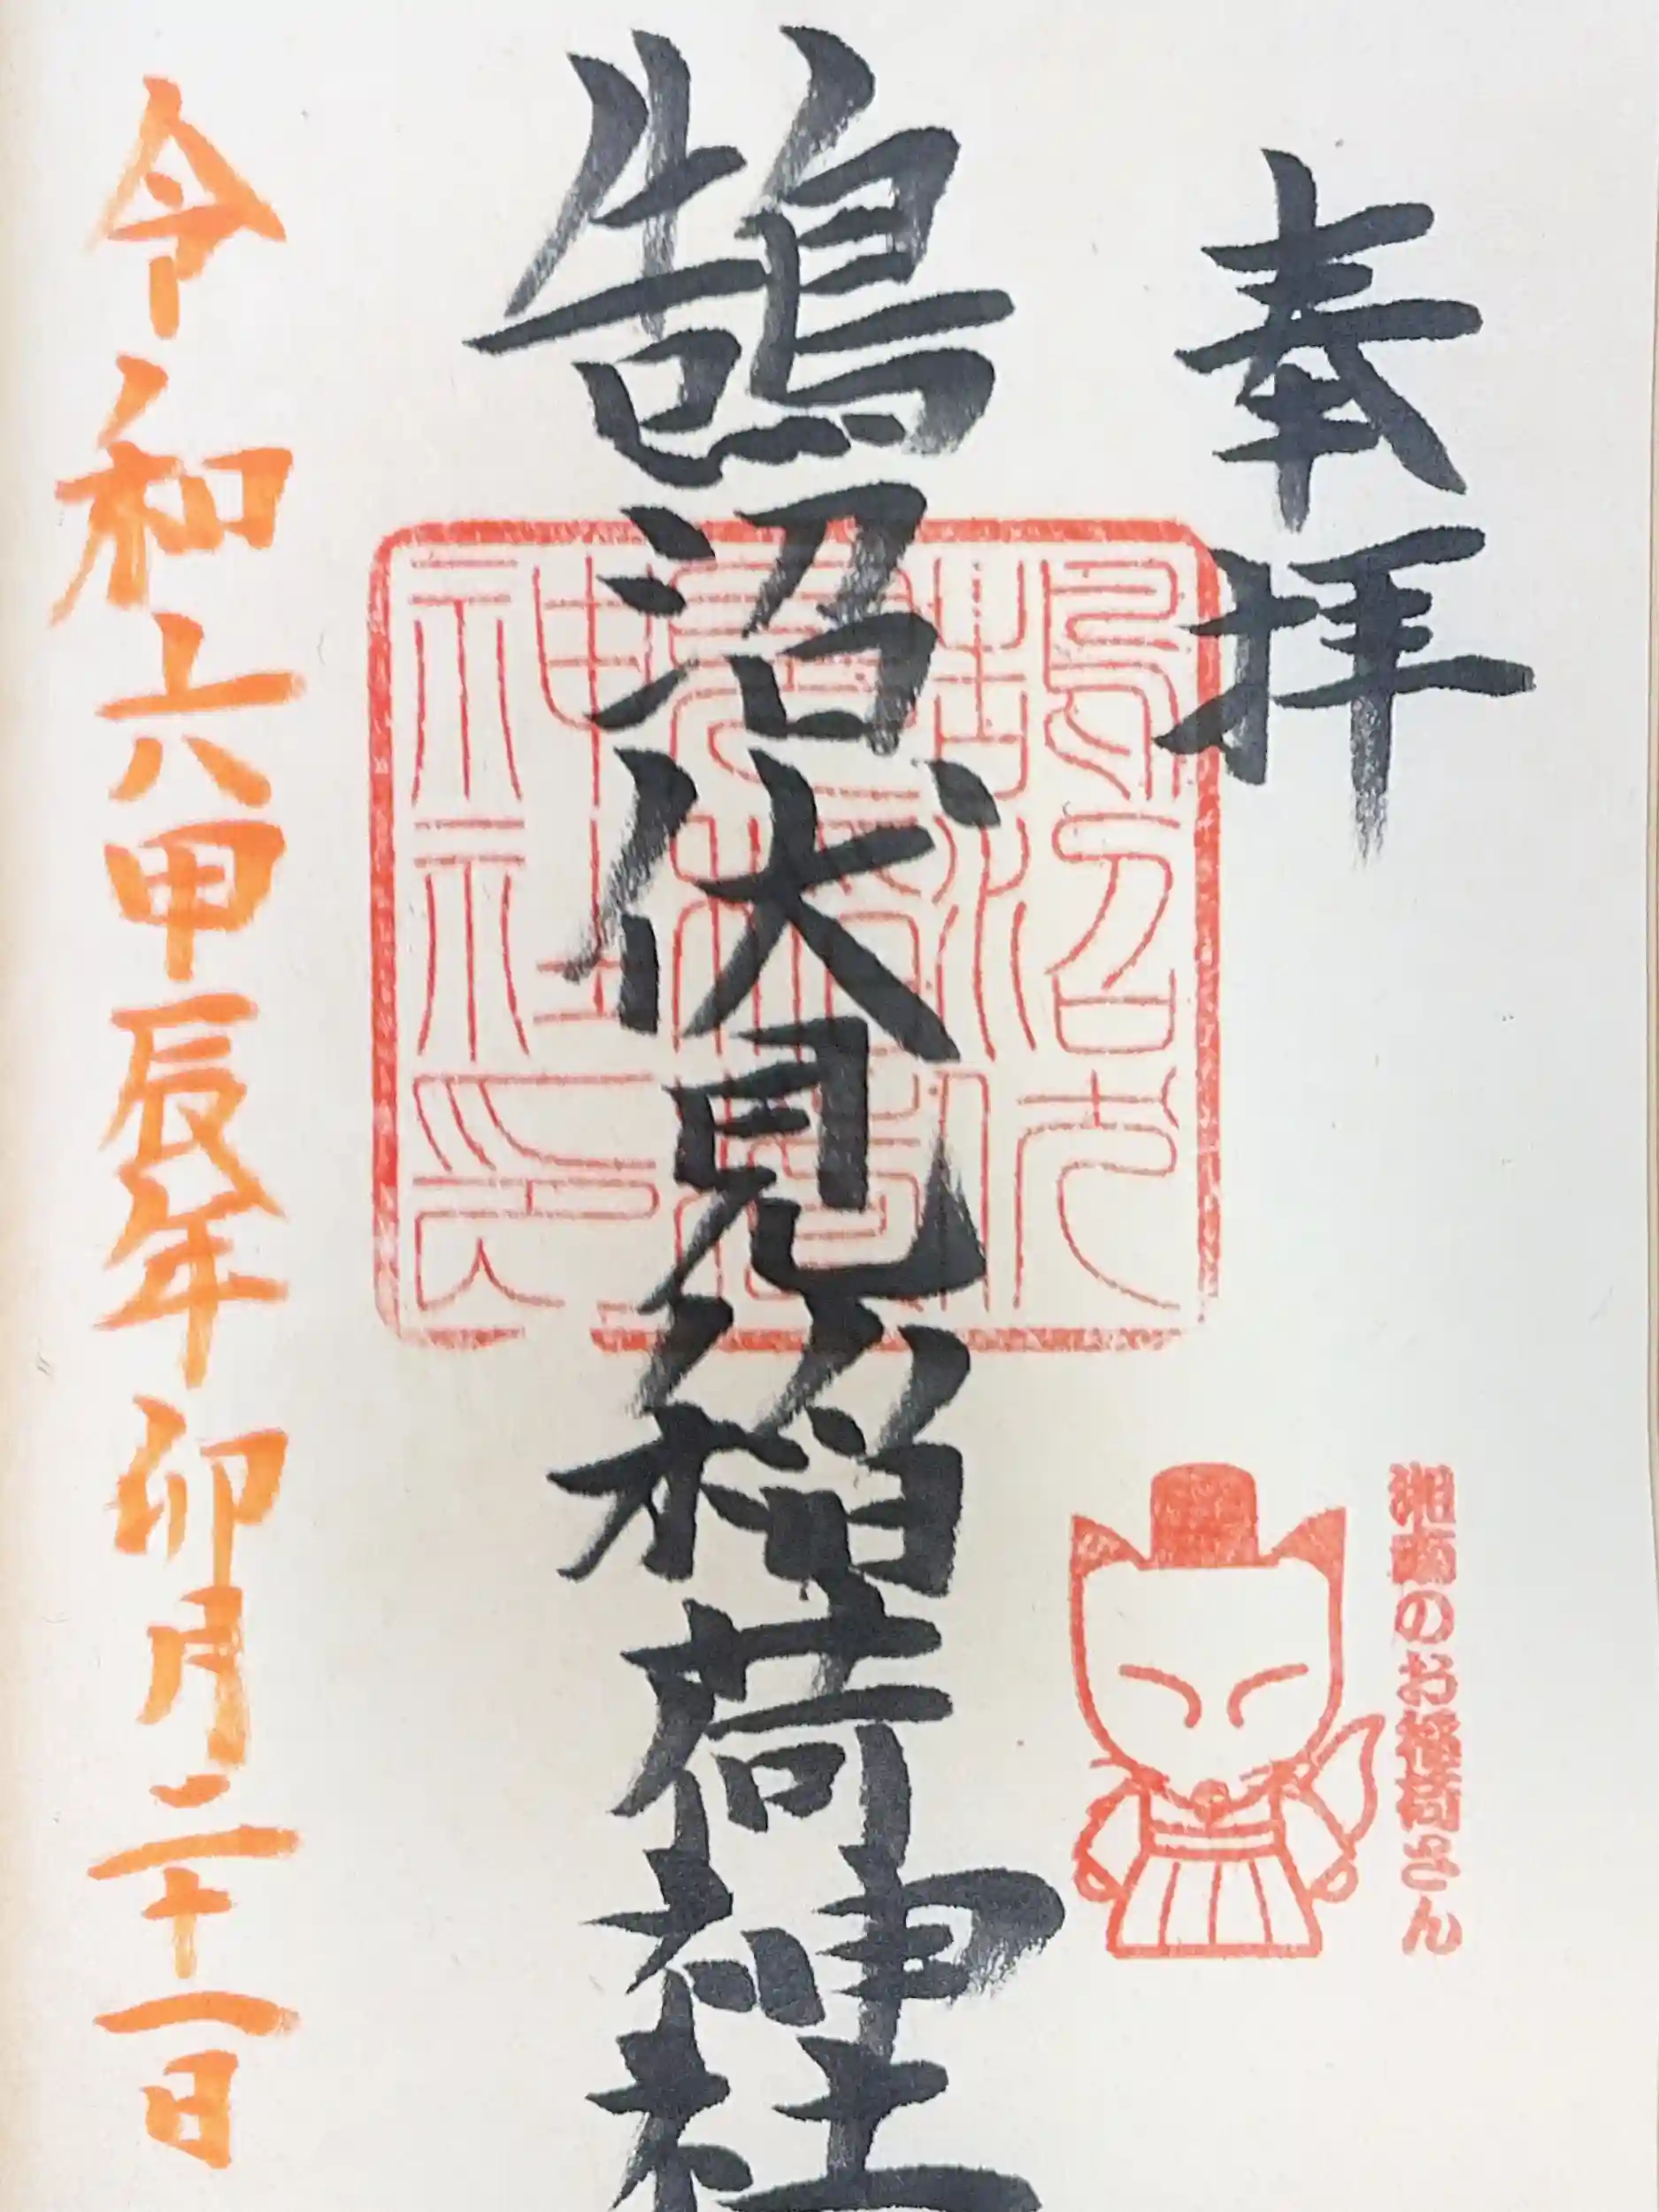 奉拝
湘南のお稲荷さん
鵠沼伏見稲荷神社
鵠沼伏
見稲荷
神社印
令和六甲辰年卯月二十一日